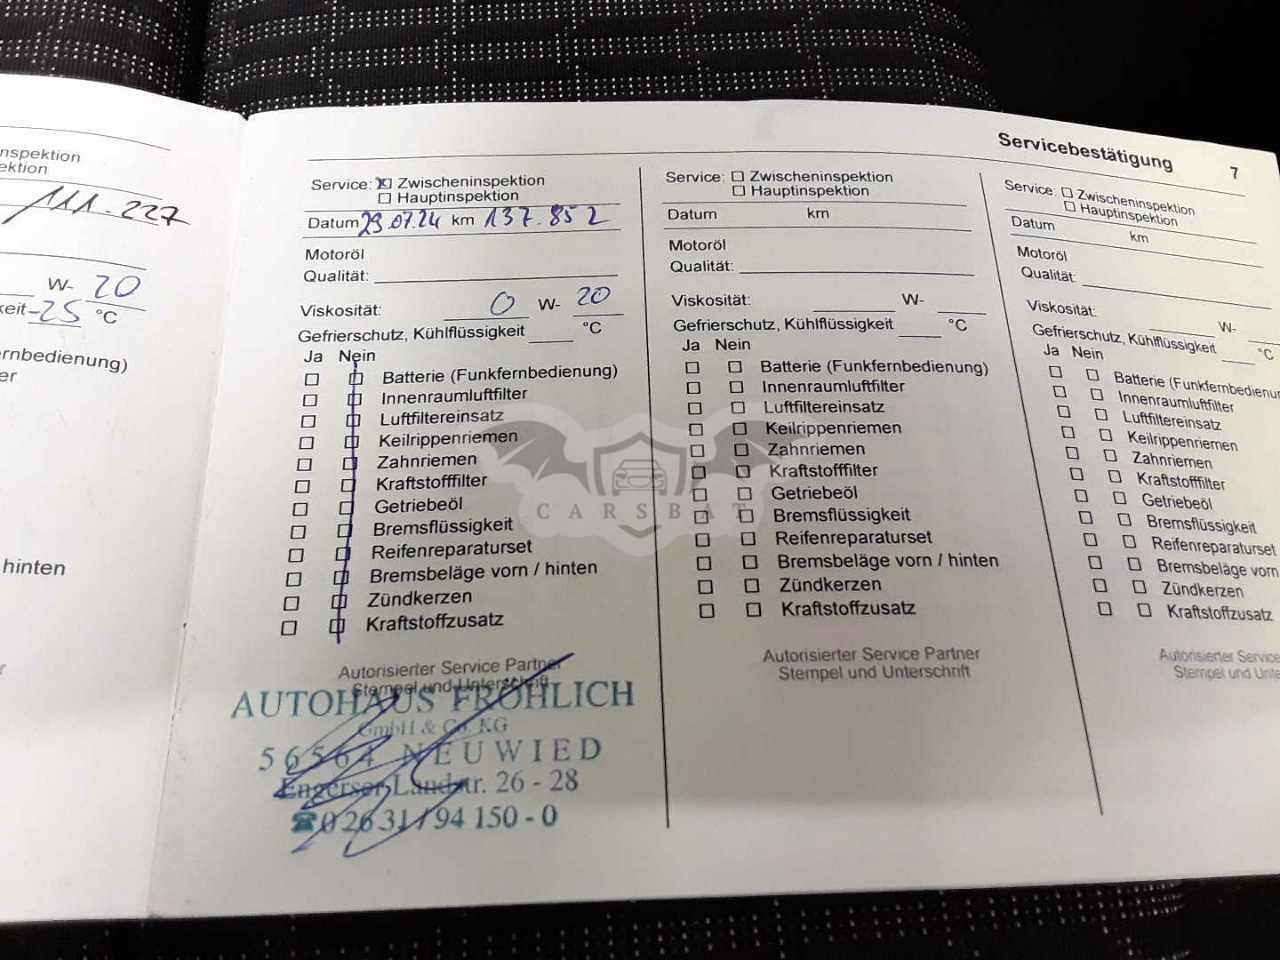 Servicebestätigung 7
nspektion
ektion
111.227
W- 20
keit -25 °C
ernbedienung)
er
hinten
r
Service: ☒ Zwischeninspektion
☐ Hauptinspektion
Datum 29.07.24 km 137.852
Motoröl
Qualität:
Viskosität: 0 W- 20
Gefrierschutz, Kühlflüssigkeit °C
Ja Nein
Batterie (Funkfernbedienung)
Innenraumluftfilter
Luftfiltereinsatz
Keilrippenriemen
Zahnriemen
Kraftstofffilter
Getriebeöl
Bremsflüssigkeit
Reifenreparaturset
Bremsbeläge vorn / hinten
Zündkerzen
Kraftstoffzusatz
Autorisierter Service Partner
Stempel und Unterschrift
AUTOHAUS FRÖHLICH
GmbH & Co. KG
56564 NEUWIED
Engerser Landstr. 26 - 28
☎ 0 26 31 / 94 150 - 0
Service: ☐ Zwischeninspektion
☐ Hauptinspektion
Datum km
Motoröl
Qualität:
Viskosität: W-
Gefrierschutz, Kühlflüssigkeit °C
Ja Nein
Batterie (Funkfernbedienung)
Innenraumluftfilter
Luftfiltereinsatz
Keilrippenriemen
Zahnriemen
Kraftstofffilter
Getriebeöl
Bremsflüssigkeit
Reifenreparaturset
Bremsbeläge vorn / hinten
Zündkerzen
Kraftstoffzusatz
Autorisierter Service Partner
Stempel und Unterschrift
Service: ☐ Zwischeninspektion
☐ Hauptinspektion
Datum km
Motoröl
Qualität:
Viskosität: W-
Gefrierschutz, Kühlflüssigkeit °C
Ja Nein
Batterie (Funkfernbedienu
Innenraumluftfilter
Luftfiltereinsatz
Keilrippenriemen
Zahnriemen
Kraftstofffilter
Getriebeöl
Bremsflüssigkeit
Reifenreparaturset
Bremsbeläge vorn
Zündkerzen
Kraftstoffzusatz
Autorisierter Service
Stempel und Unte
CARSBAT